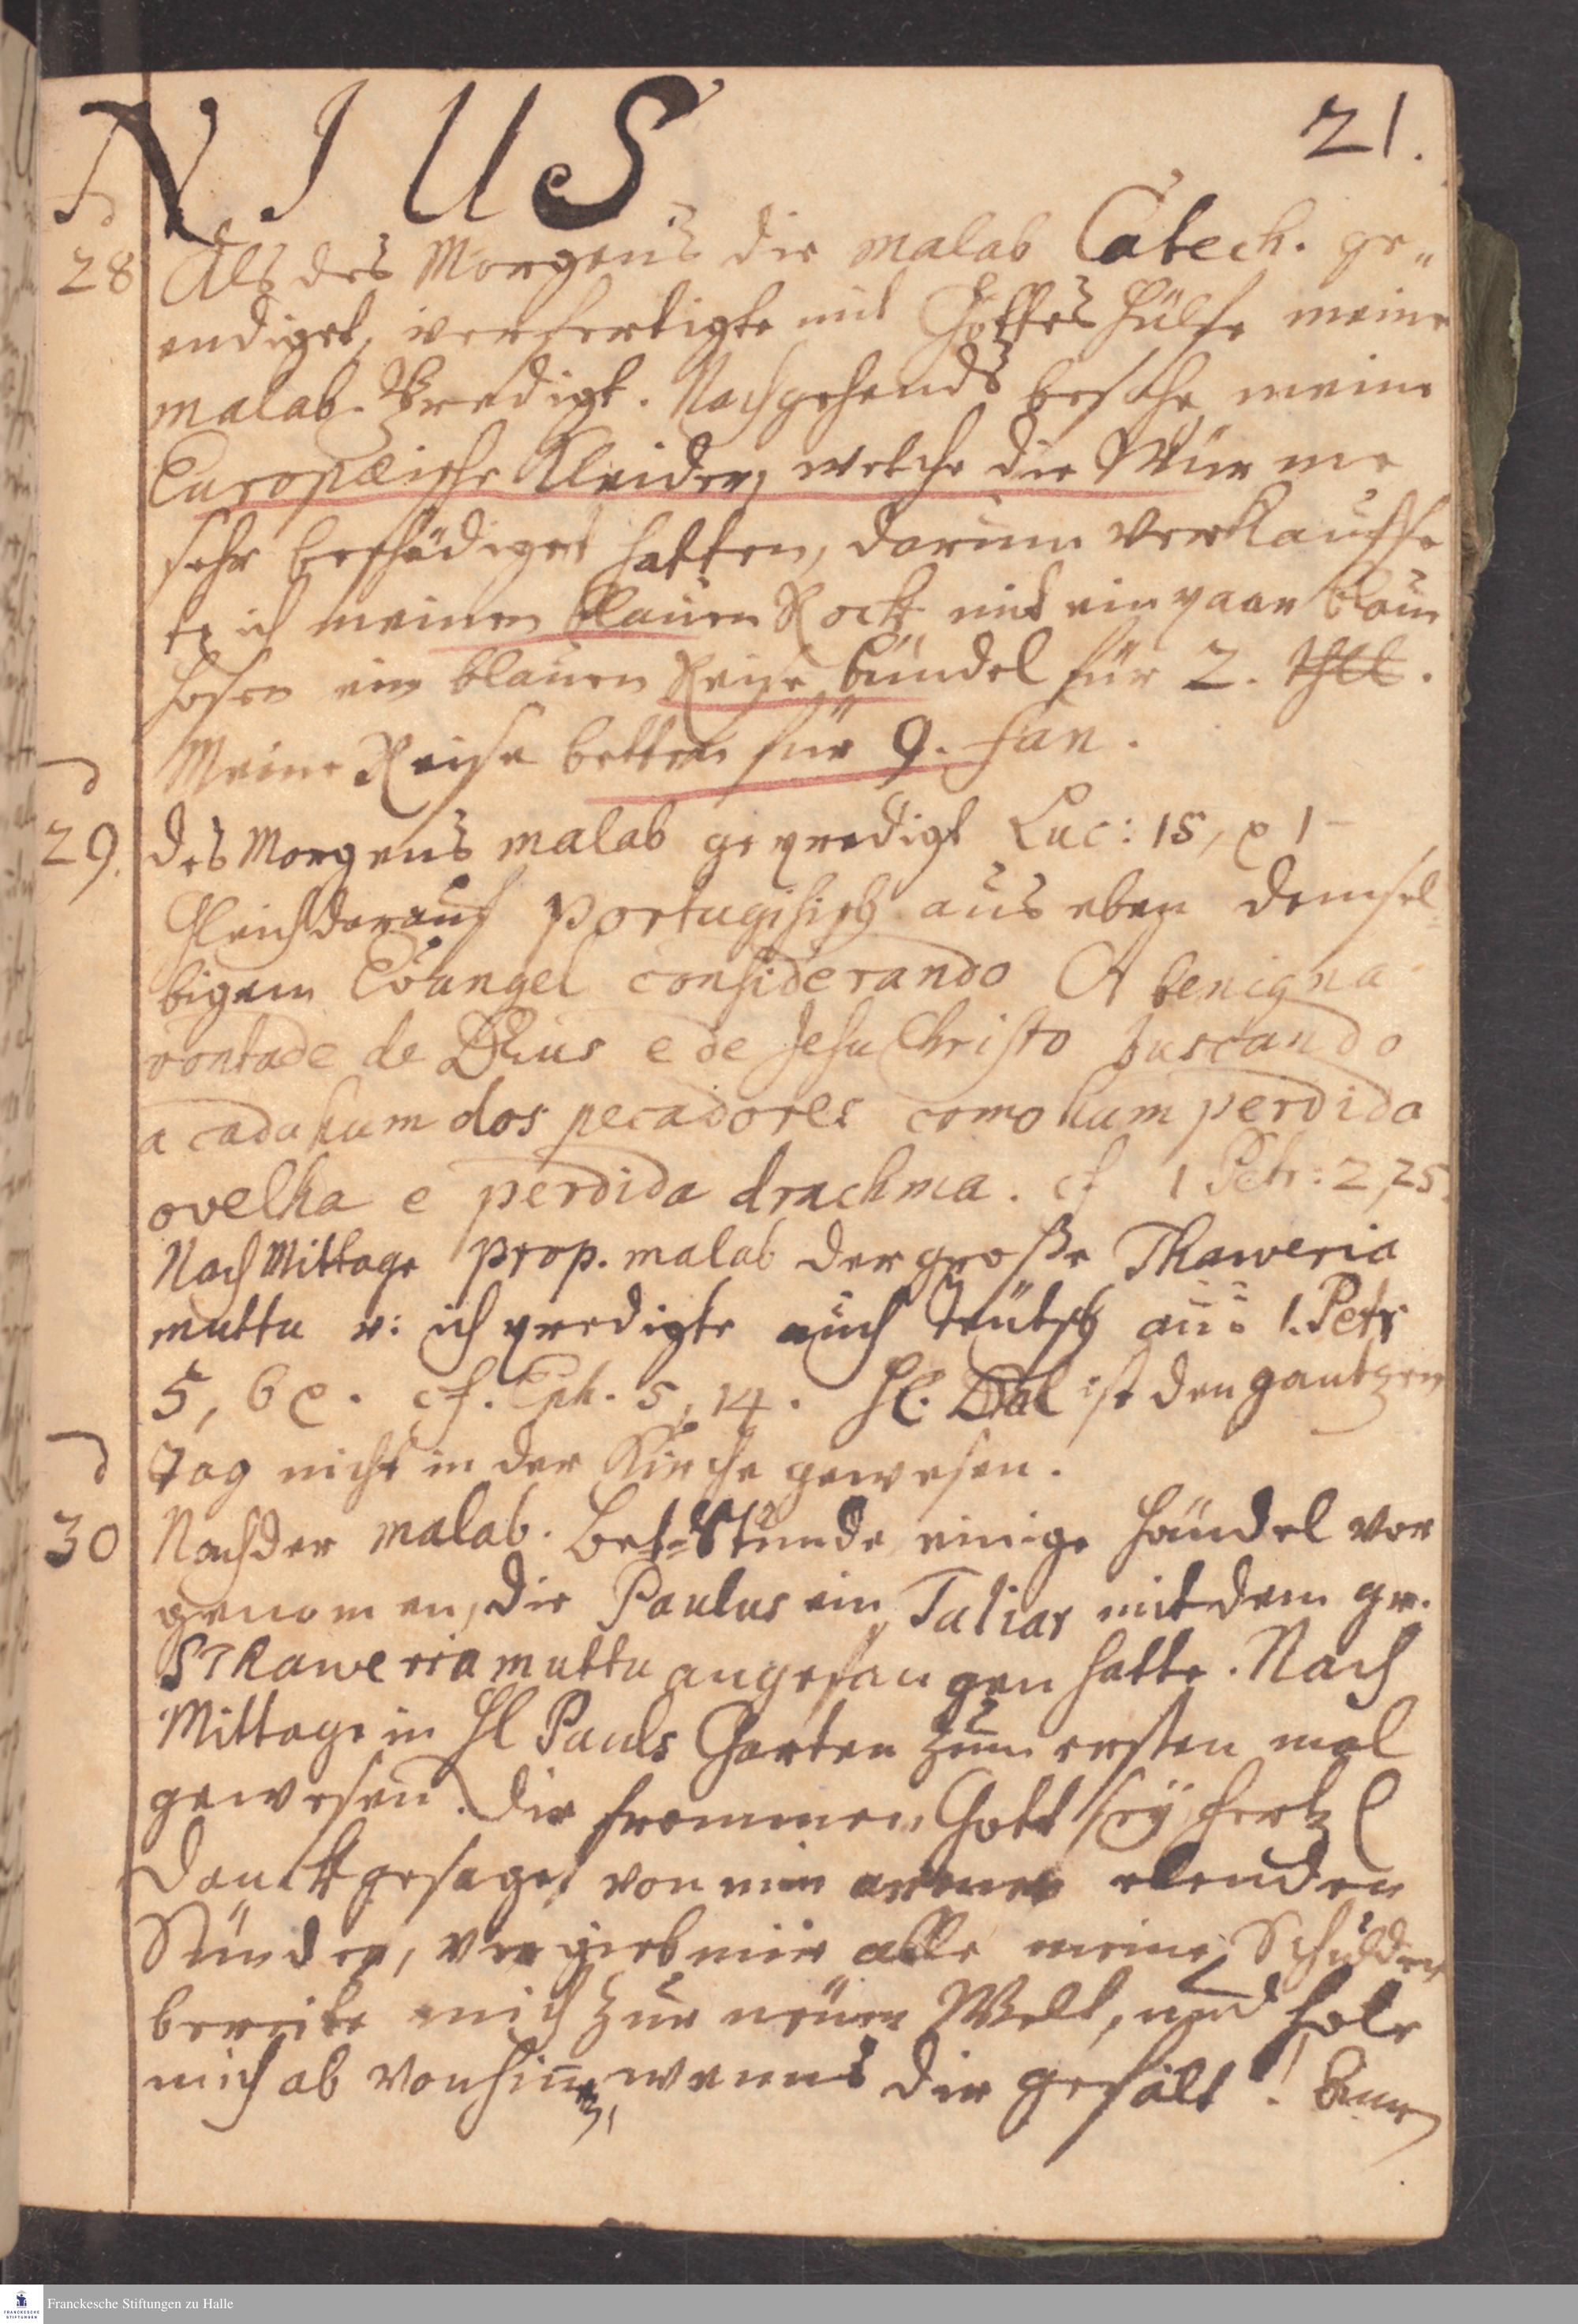 NIUS
21.
28 Als des Morgens die malab Catech. ge„
endiget, verfertigte mit Gottes Hülfe meine
malab. Predigt. Nachgehends besahe meine
Europæische Kleider, welche die Würme
sehr beschädiget hatten, darum verkauffe
te ich meinen blauen Rock mit ein paar blaue
Hosen ein blauen Reise bündel für 2. Thl.
Meine Reise betten für 9. fan.
29. des Morgens malab gepredigt Luc: 15, 1
Gleich darauf portugisisch aus eben demsel
bigem Evangel considerando A benigna
vontade de Deus e de Jesu Christo buscando
a cada hum dos pecadores como hum perdida
ovelha e perdida drachma. cf 1 Petr: 2,25.
Nach Mittage prop. malab der große Thaweria
muttu u: ich predigte auch Teutsch aus 1. Petr
5, 6 cf. Eph. 5, 14. H. Dal ist den gantzen
Tag nicht in der Kirche gewesen.
30 Nach der malab. Bet-Stunde einige Händel vor
genomen, die Paulus ein Taliar mit dem gr.
Thaweriamuttu angefangen hatte. Nach
Mittage in H Pauls Garten zum ersten mal
gewesen. Dir frommen Gott sey hertzl
Danck gesaget von mir armen elenden
Sünder, vergieb mir alle meine Schulden
bereite mich zur neuen Welt, und hole
mich ab von hinn, wenns dir gefält!
Franckesche Stiftungen zu Halle
FRANCKESCHE STIFTUNGEN